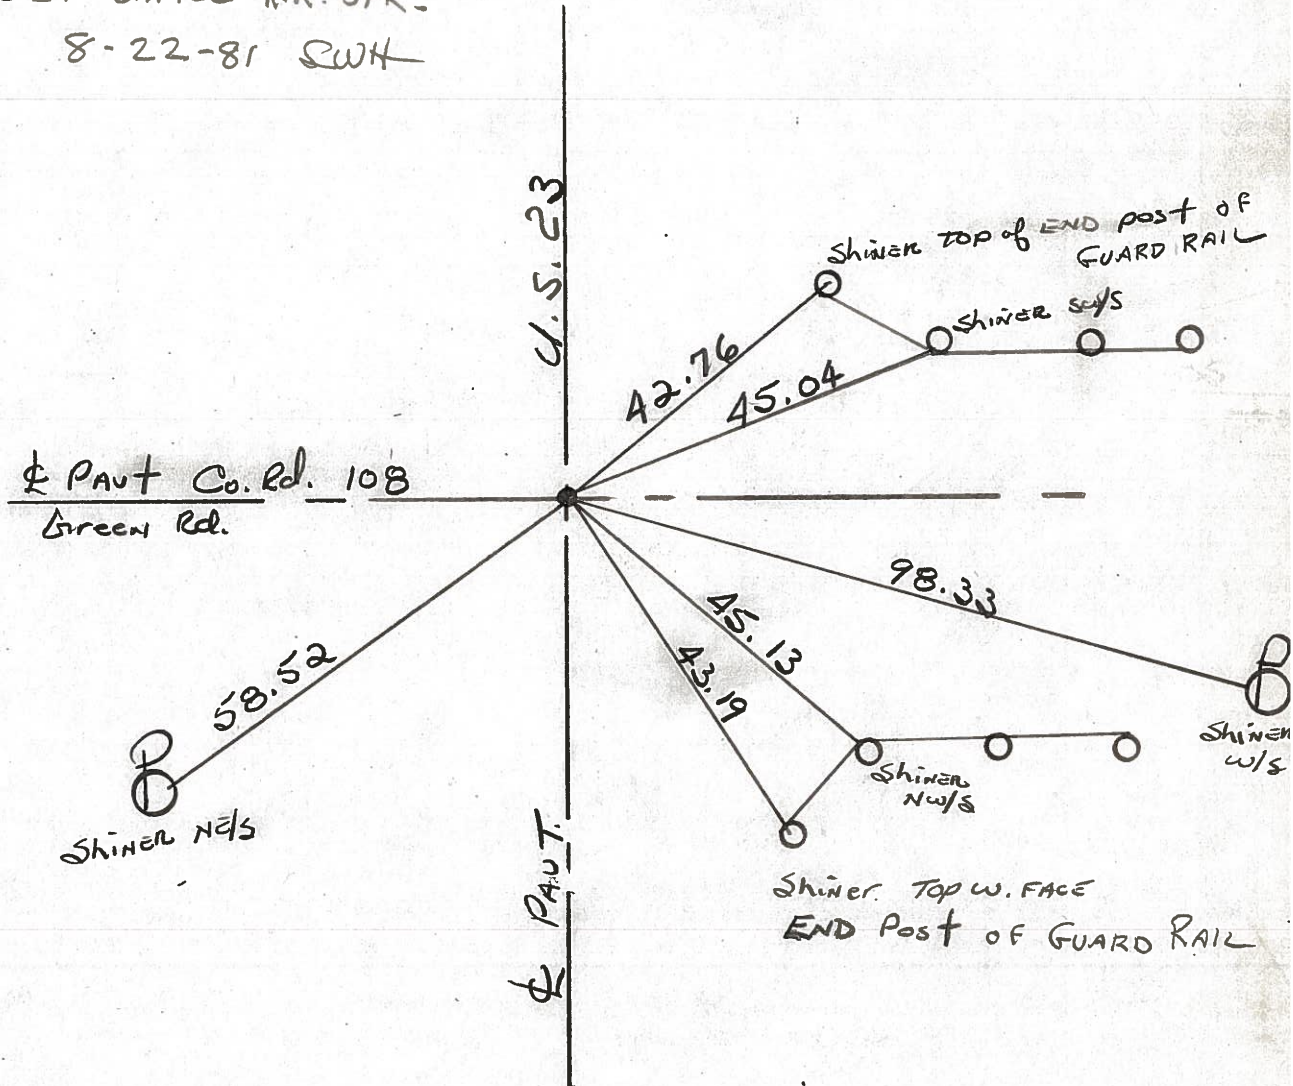 8-22-81 SWH
U.S. 23
Shiner top of END post of
GUARD RAIL
Shiner SW/S
42.76
45.04
℄ PAVt Co. Rd. 108
Green Rd.
98.33
45.13
43.19
58.52
Shiner NE/S
Shiner
W/S
Shiner
NW/S
℄ PAVT.
Shiner. Top W. FACE
END Post OF GUARD RAIL